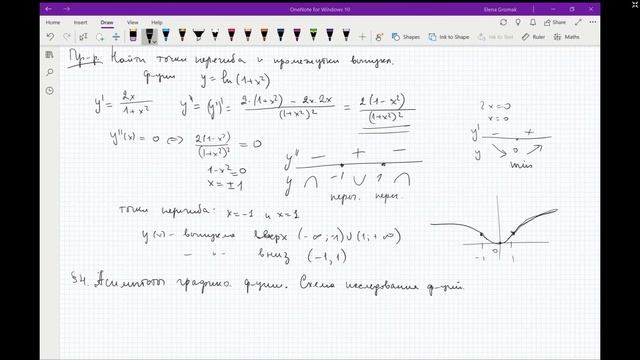 OneNote for Windows 10
Elena Gromak
File Home Insert Draw View Help
Shapes Ink to Shape Ink to Text Math
Пр-р. Найти точки перегиба и промежутки выпукл.
ф-ции y = ln(1+x²)
y' = 2x/(1+x²) y'' = (y')' = (2·(1+x²) − 2x·2x)/(1+x²)² = 2(1−x²)/(1+x²)²
2x=0
x=0
y' − +
y 0
min
y''(x) = 0 ⇔ 2(1−x²)/(1+x²)² = 0
1−x²=0
x = ±1
y'' − + −
y ∩ −1 ∪ 1 ∩
перег. перег.
точки перегиба: x=−1 и x=1
y(x) − выпукла вверх (−∞;−1)∪(1;+∞)
− " − вниз (−1,1)
−1 0 1
§4. Асимптоты графика ф-ции. Схема исследования ф-ций.